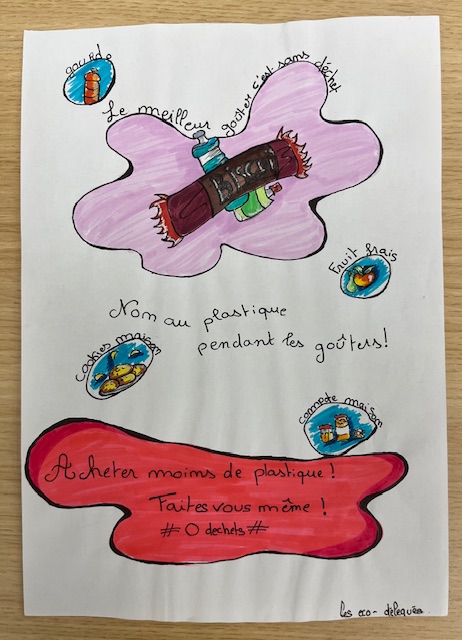 gourde
Le meilleur goûter c'est sans déchet
Biscuit
Fruit frais
Non au plastique
pendant les goûters!
Cookies maison
compote maison
Acheter moins de plastique!
Faites vous même!
# 0 dechets #
les eco-délégués